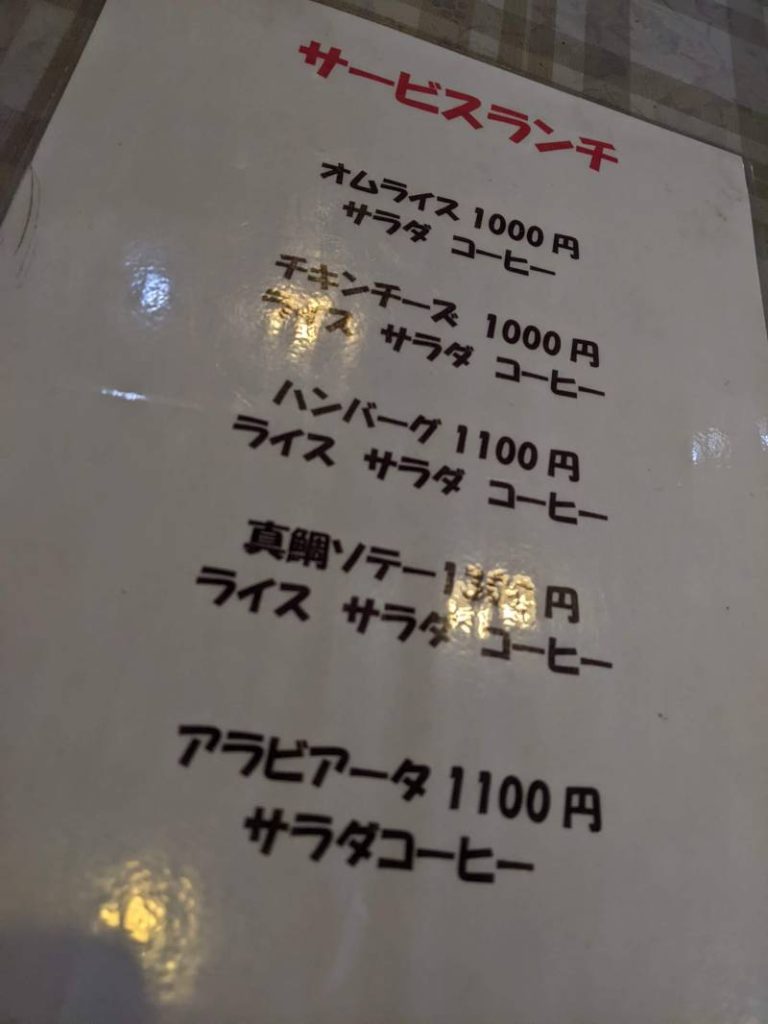 サービスランチ
オムライス 1000 円
サラダ コーヒー
チキンチーズ 1000 円
ライス サラダ コーヒー
ハンバーグ 1100 円
ライス サラダ コーヒー
真鯛ソテー 円
ライス サラダ コーヒー
アラビアータ 1100 円
サラダコーヒー